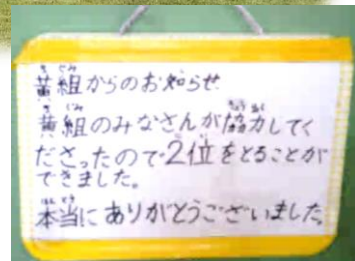 黄組からのお知らせ
黄組のみなさんが協力してく
ださったので2位をとることが
できました。
本当にありがとうございました。